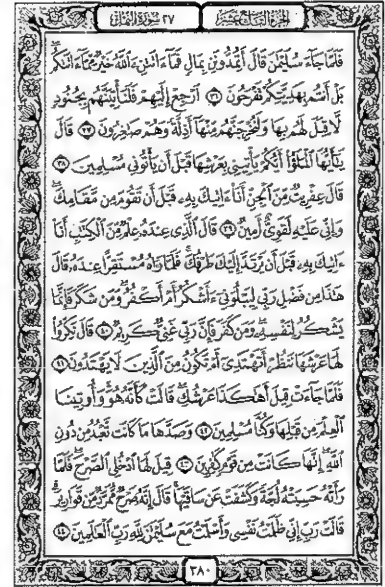 الجزء التاسع عشر
٢٧ سورة النمل
فَلَمَّا جَآءَ سُلَيْمَٰنَ قَالَ أَتُمِدُّونَنِ بِمَالٍ فَمَآ ءَاتَىٰنِۦَ ٱللَّهُ خَيْرٌ مِّمَّآ ءَاتَىٰكُم
بَلْ أَنتُم بِهَدِيَّتِكُمْ تَفْرَحُونَ ۝٣٦ ٱرْجِعْ إِلَيْهِمْ فَلَنَأْتِيَنَّهُم بِجُنُودٍ
لَّا قِبَلَ لَهُم بِهَا وَلَنُخْرِجَنَّهُم مِّنْهَآ أَذِلَّةً وَهُمْ صَٰغِرُونَ ۝٣٧ قَالَ
يَٰٓأَيُّهَا ٱلْمَلَؤُا۟ أَيُّكُمْ يَأْتِينِى بِعَرْشِهَا قَبْلَ أَن يَأْتُونِى مُسْلِمِينَ ۝٣٨
قَالَ عِفْرِيتٌ مِّنَ ٱلْجِنِّ أَنَا۠ ءَاتِيكَ بِهِۦ قَبْلَ أَن تَقُومَ مِن مَّقَامِكَ ۖ
وَإِنِّى عَلَيْهِ لَقَوِىٌّ أَمِينٌ ۝٣٩ قَالَ ٱلَّذِى عِندَهُۥ عِلْمٌ مِّنَ ٱلْكِتَٰبِ أَنَا۠
ءَاتِيكَ بِهِۦ قَبْلَ أَن يَرْتَدَّ إِلَيْكَ طَرْفُكَ ۚ فَلَمَّا رَءَاهُ مُسْتَقِرًّا عِندَهُۥ قَالَ
هَٰذَا مِن فَضْلِ رَبِّى لِيَبْلُوَنِىٓ ءَأَشْكُرُ أَمْ أَكْفُرُ ۖ وَمَن شَكَرَ فَإِنَّمَا
يَشْكُرُ لِنَفْسِهِۦ ۖ وَمَن كَفَرَ فَإِنَّ رَبِّى غَنِىٌّ كَرِيمٌ ۝٤٠ قَالَ نَكِّرُوا۟
لَهَا عَرْشَهَا نَنظُرْ أَتَهْتَدِىٓ أَمْ تَكُونُ مِنَ ٱلَّذِينَ لَا يَهْتَدُونَ ۝٤١
فَلَمَّا جَآءَتْ قِيلَ أَهَٰكَذَا عَرْشُكِ ۖ قَالَتْ كَأَنَّهُۥ هُوَ ۚ وَأُوتِينَا
ٱلْعِلْمَ مِن قَبْلِهَا وَكُنَّا مُسْلِمِينَ ۝٤٢ وَصَدَّهَا مَا كَانَت تَّعْبُدُ مِن دُونِ
ٱللَّهِ ۖ إِنَّهَا كَانَتْ مِن قَوْمٍ كَٰفِرِينَ ۝٤٣ قِيلَ لَهَا ٱدْخُلِى ٱلصَّرْحَ ۖ فَلَمَّا
رَأَتْهُ حَسِبَتْهُ لُجَّةً وَكَشَفَتْ عَن سَاقَيْهَا ۚ قَالَ إِنَّهُۥ صَرْحٌ مُّمَرَّدٌ مِّن قَوَارِيرَ ۗ
قَالَتْ رَبِّ إِنِّى ظَلَمْتُ نَفْسِى وَأَسْلَمْتُ مَعَ سُلَيْمَٰنَ لِلَّهِ رَبِّ ٱلْعَٰلَمِينَ ۝٤٤
٣٨٠